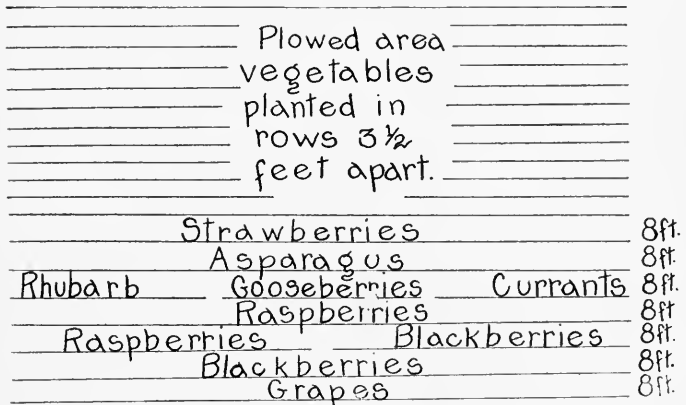 Plowed area
vegetables
planted in
rows 3 ½
feet apart.
Strawberries 8ft.
Asparagus 8ft.
Rhubarb Gooseberries Currants 8ft.
Raspberries 8ft
Raspberries Blackberries 8ft.
Blackberries 8ft.
Grapes 8ft.